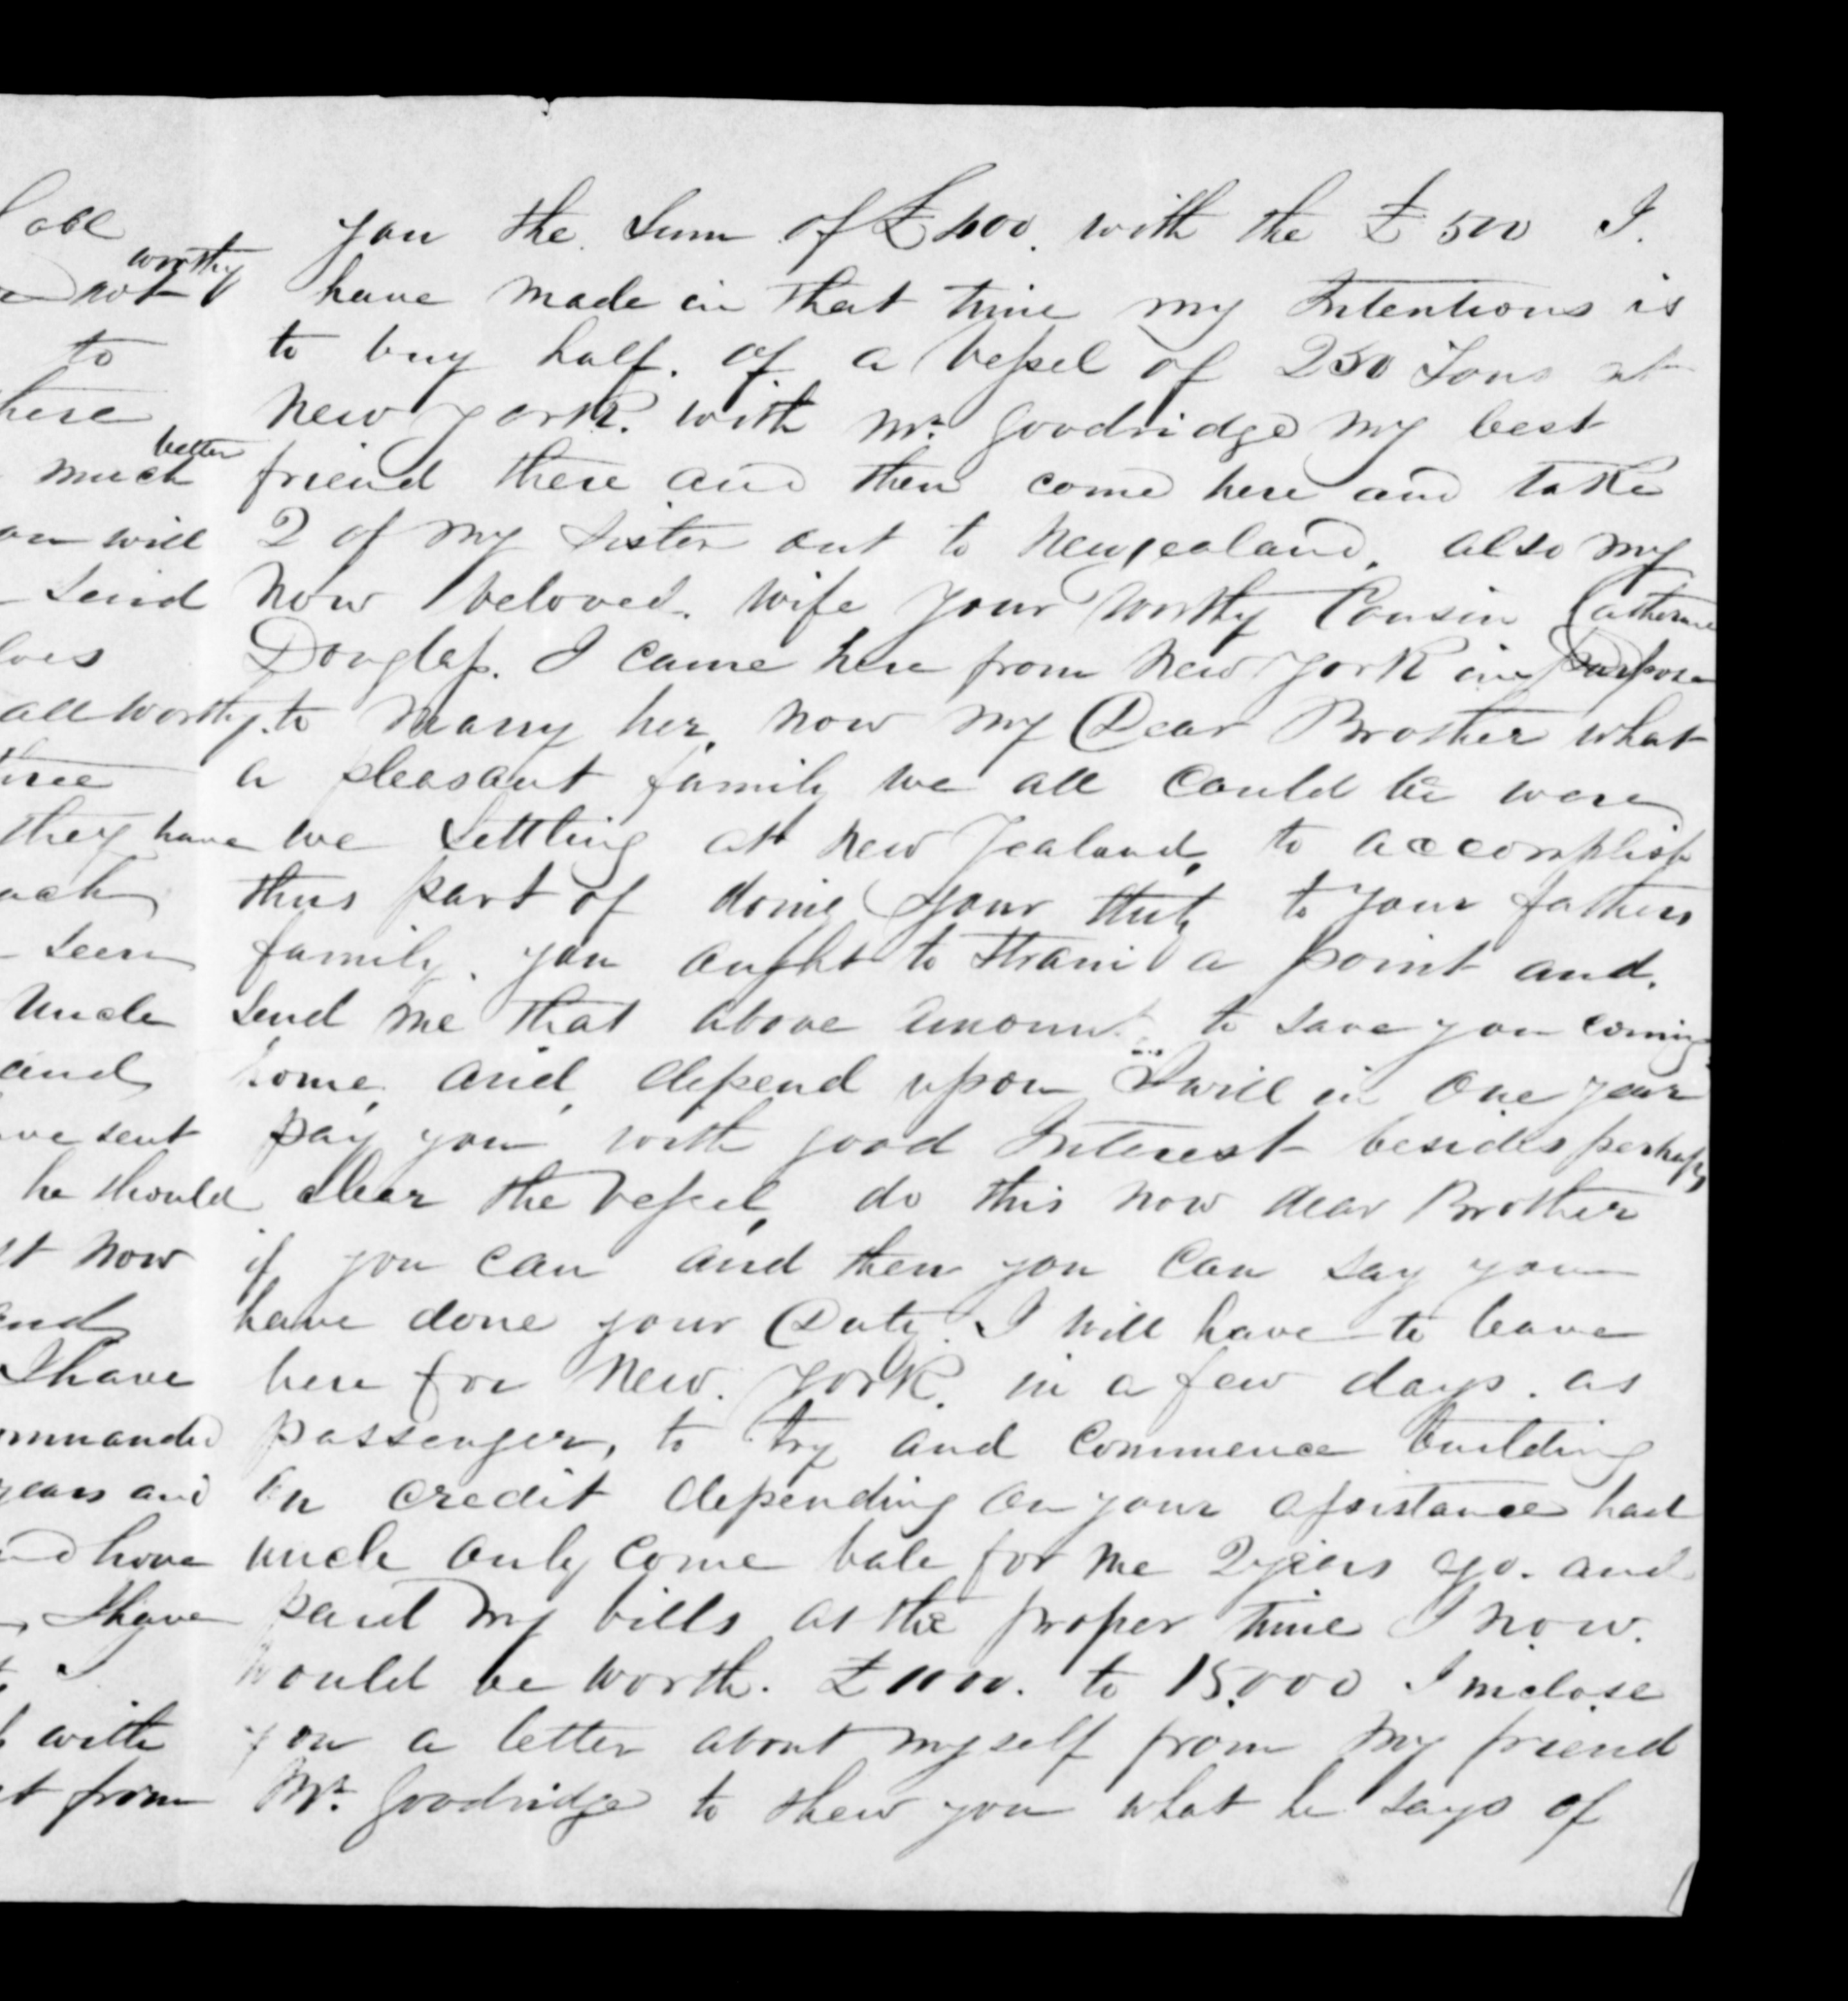 you the Sum of £400. with the £500 I.
have made in that time my Intentions is
to buy half. of a vessel of 250 Tons at
New york. with Mr. Goodridge my best
friend there and then come here and take
2 of my Sister out to Newzealand, also my
now beloved. wife your worthy Cousin Catherine
Douglass. I came here from New York in purpose
to marry her, now my Dear Brother what
a pleasant family we all could be were
we Settling at New Zealand, to accomplish
thus part of doing your duty to your fathers
family. you aught to strain a point and.
Send me that above amount to save you coming
home, and, depend upon I will in one year
pay you with good Interest besides perhaps
clear the vessel, do this now dear Brother
if you can and then you can say you
have done your Duty. I will have to leave
here for New. York. in a few days. as
passenger, to try and commence building
on credit depending on your assistance had
uncle only come bale for me 2 years ago. and
paid my bills at the proper time I now.
would be worth. £1000. to 15.000 I inclose
you a letter about myself from my friend
Mr. Goodridge to shew you what he says of
all
worthy
not
to
here
better
much
will
Send
all worthy.
three
they have
each
seen
Uncle
and
have sent
he should
now
and
I have
commanded
years and
have
I have
with
from